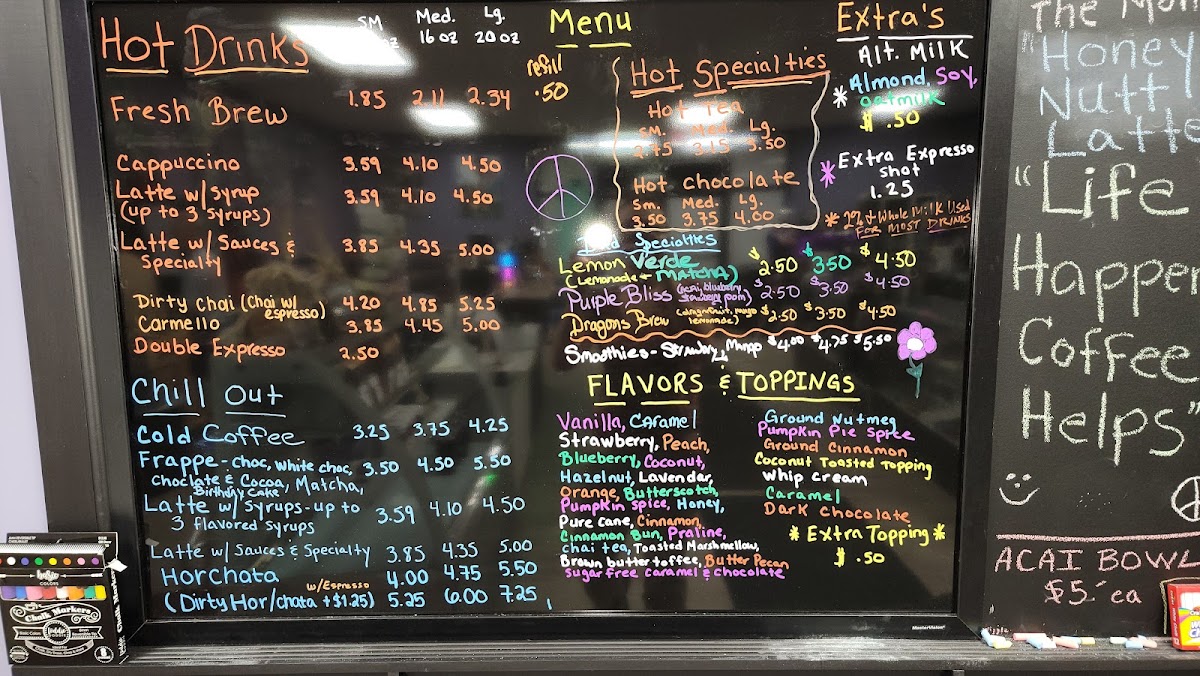 Hot Drinks
SM Med. Lg.
oz 16 oz 20 oz
refill
.50
Fresh Brew 1.85 2.11 2.34
Cappuccino 3.59 4.10 4.50
Latte w/ syrup 3.59 4.10 4.50
(up to 3 syrups)
Latte w/ Sauces & 3.85 4.35 5.00
Specialty
Dirty chai (chai w/ 4.20 4.85 5.25
espresso)
Carmello 3.85 4.45 5.00
Double Expresso 2.50
Chill Out
Cold Coffee 3.25 3.75 4.25
Frappe - choc, white choc, 3.50 4.50 5.50
choclate & Cocoa, Matcha,
Birthday Cake
Latte w/ Syrups - up to 3.59 4.10 4.50
3 flavored syrups
Latte w/ Sauces & Specialty 3.85 4.35 5.00
Horchata 4.00 4.75 5.50
w/Espresso
(Dirty Hor/chata +$1.25) 5.25 6.00 7.25
Menu
Hot Specialties
Hot Tea
SM. Med. Lg.
2.75 3.15 3.50
Hot chocolate
Sm. Med. Lg.
3.50 3.75 4.00
Specialties
Lemon Verde $2.50 $3.50 $4.50
(Lemonade + MATCHA)
Purple Bliss (acai, blueberry, $2.50 $3.50 $4.50
Dragons Brew (dragonfruit, mango $2.50 $3.50 $4.50
lemonade)
Smoothies - Strawberry, Mango $4.00 $4.75 $5.50
FLAVORS & TOPPINGS
Vanilla, Caramel
Strawberry, Peach,
Blueberry, Coconut,
Hazelnut, Lavendar,
Orange, Butterscotch,
Pumpkin spice, Honey,
Pure cane, Cinnamon,
Cinnamon Bun, Praline,
chai tea, Toasted Marshmellow,
Brown butter toffee, Butter Pecan
sugar free caramel & chocolate
Ground Nutmeg
Pumpkin Pie Spice
Ground Cinnamon
Coconut Toasted Topping
Whip cream
Caramel
Dark Chocolate
* Extra Topping *
$.50
Extra's
Alt. Milk
* Almond, Soy,
oatmilk
$.50
* Extra Expresso
shot
1.25
* 2% & Whole Milk Used
FOR MOST DRINKS
The
"Honey
Nutt
Latte
"Life
Happen
Coffee
Helps"
ACAI BOWL
$5.- ea
Chalk Markers
MasterVision